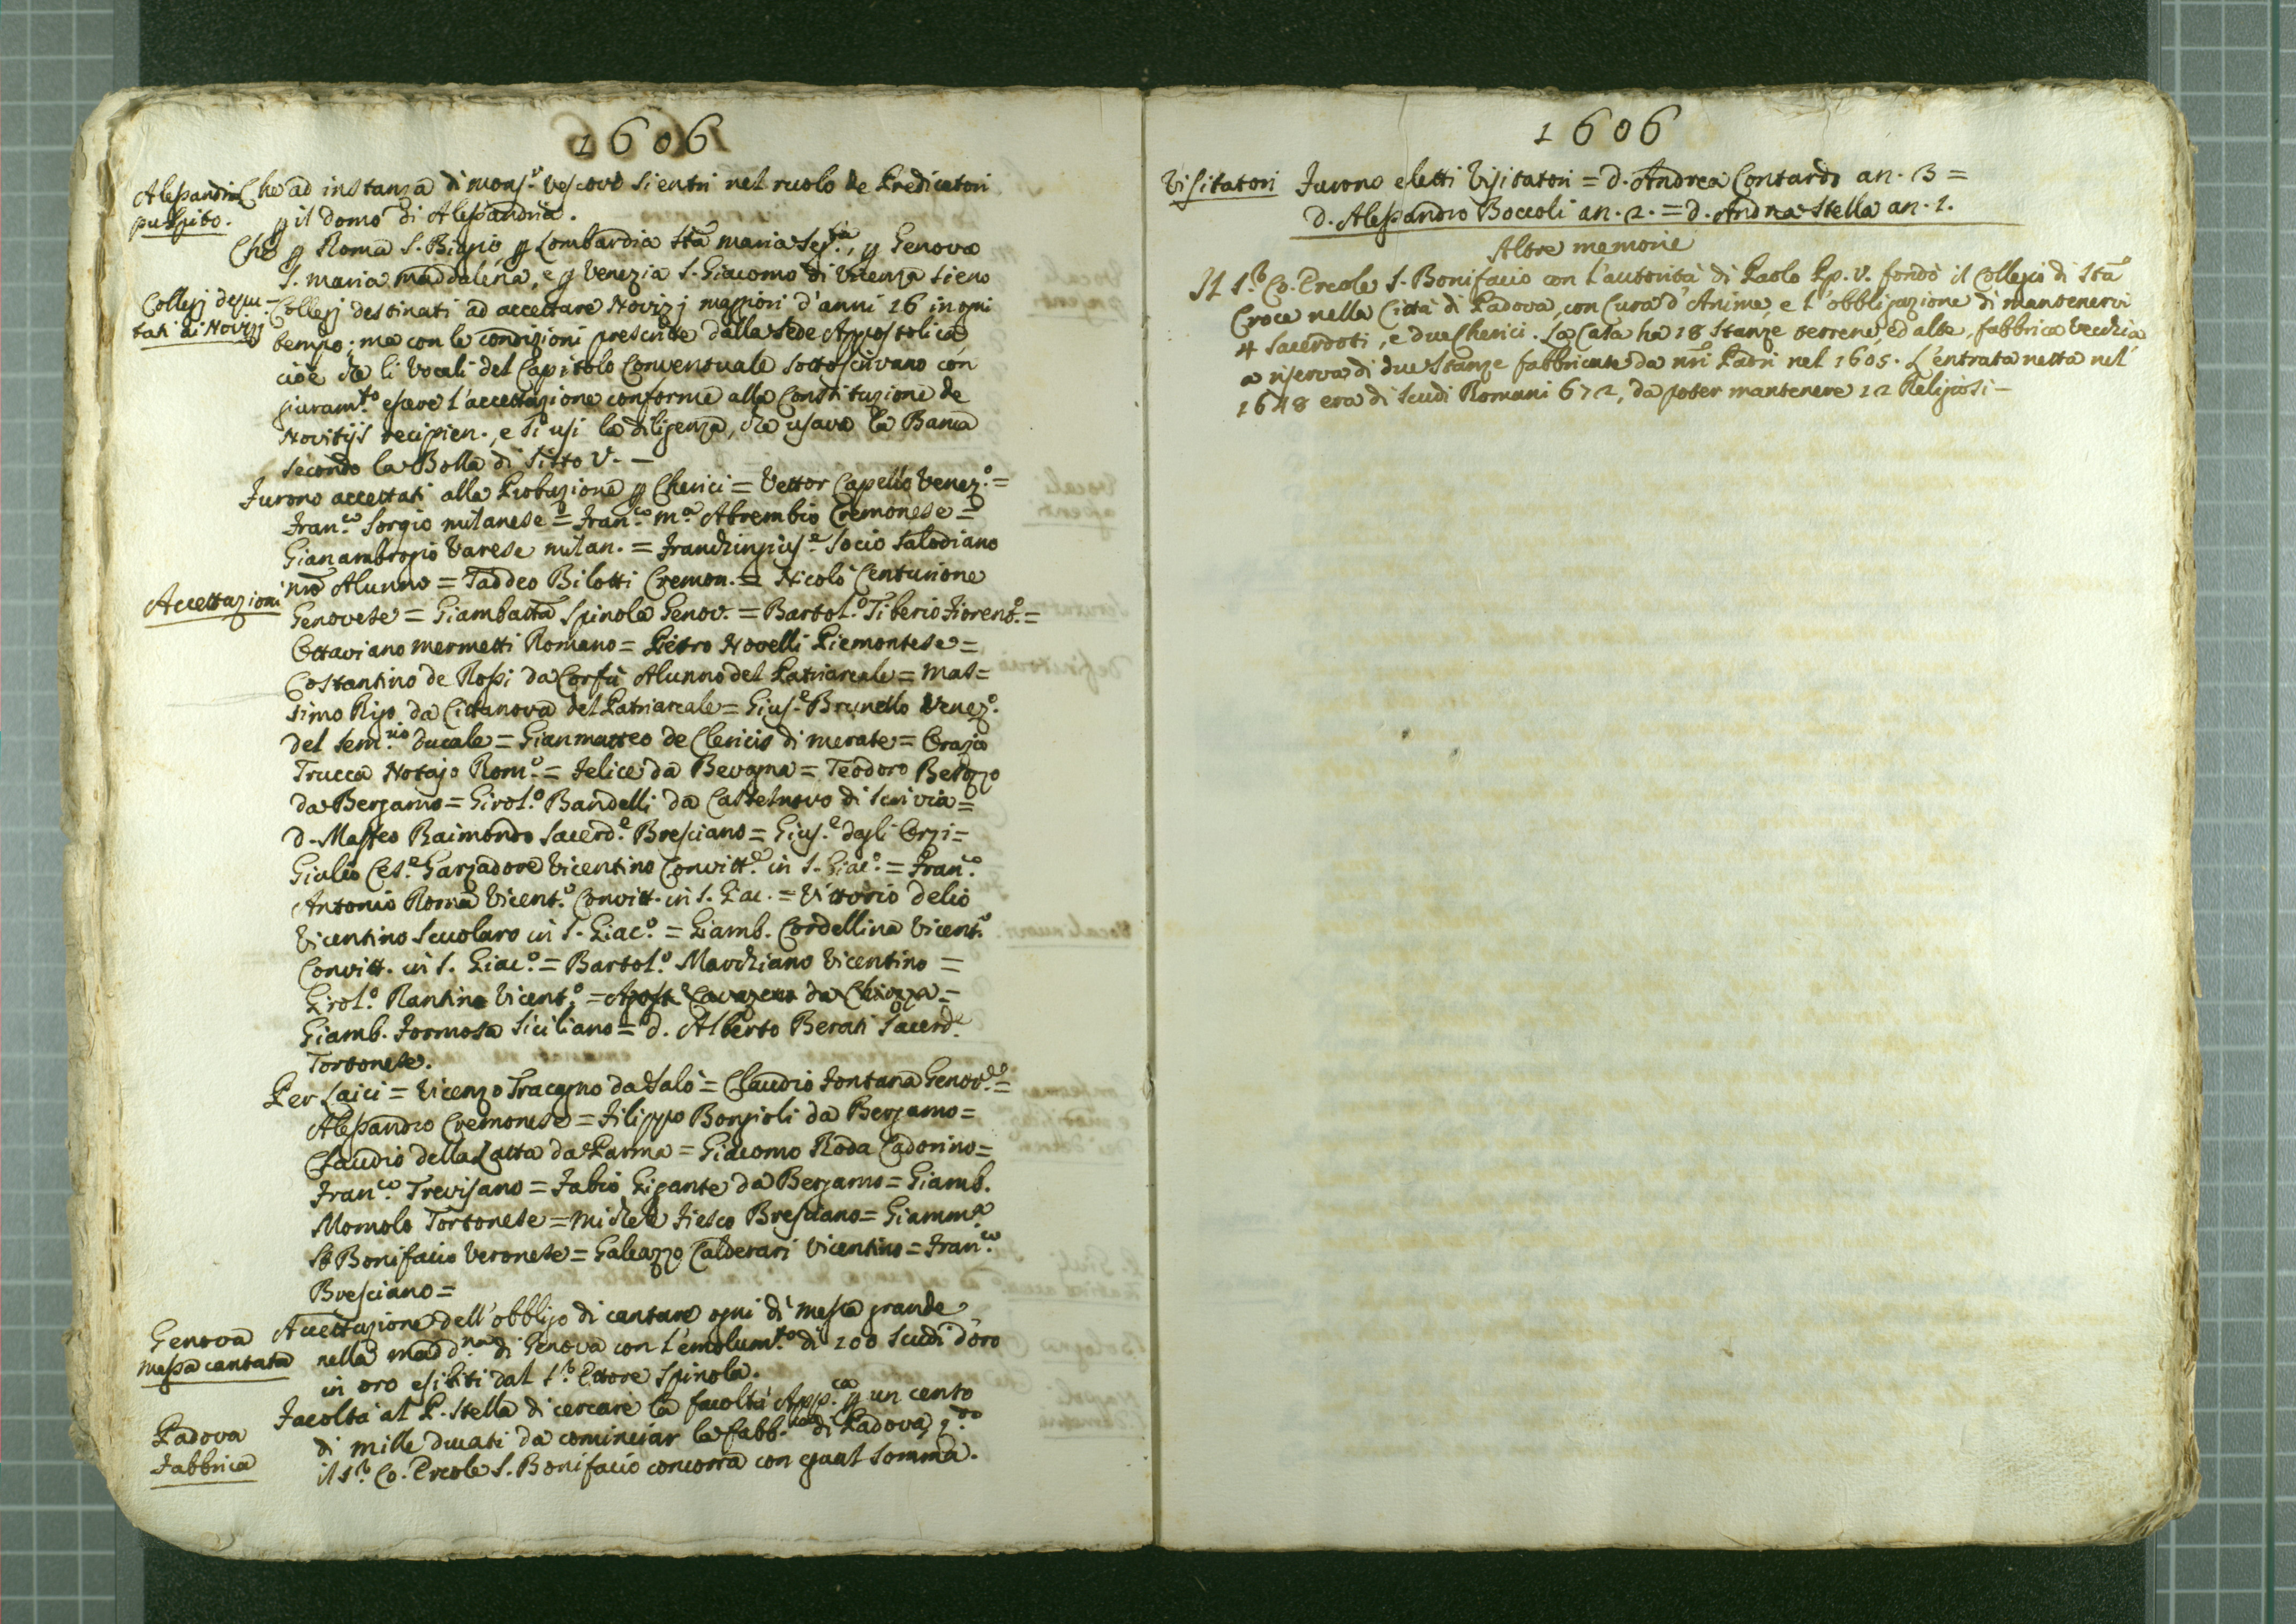 1606
Alessandria Che ad instanza di mons.r Vescovo si entri nel ruolo de Predicatori
pulpito. p il domo di Alessandria.
Che p Roma S. Biagio, p Lombardia Sta Maria Seg.ta, p Genova
S. Maria Maddalena, e p Venezia S. Giacomo di Vicenza sieno
Collegj depu- Collegj destinati ad accettare Novizj maggiori d'anni 16 in ogni
tati ai Novizj tempo; ma con le condizioni prescritte dalla Sede Appostolica
cioè che li Vocali del Capitolo Conventuale sottoscrivano con
giuram.to essere l'accettazione conforme alla Constituzione de
Novitijs recipien., e si usi la diligenza, che usava la
secondo la Bolla di Sisto V. —
Furono accettati alla Probazione p Cherici = Vettor Capello Venez.o =
Fran.co Sorgio milanese = Fran.co M.a Abrembio Cremonese =
Gianambrogio Varese milan. = Franchingius.e Socio Salodiano
nro Alunno = Taddeo Bilotti Cremon. = Nicolò Centurione
Accettazioni Genovese = Giambatta Spinola Genov. = Bartol.o Tiberio Fiorent.o =
Ottaviano Mermetti Romano = Pietro Novelli Piemontese =
Costantino de Rossi da Corfù Alunno del Patriarcale = Mas=
simo Rigo da Cittanova del Patriarcale = Gius.e Brunello Venez.o
del Sem.rio Ducale = Gianmatteo de Clericis di Merate = Orazio
Trucca Notajo Rom.o = Felice da Bevagna = Teodoro
da Bergamo = Girol.o Bandelli da Castelnovo di Scrivia =
D. Maffeo Raimondo Sacerd.e Bresciano = Gius.e dagli Orzi =
Giulio Ces.e Garzadore Vicentino Convitt.e in S. Giac.o = Fran.co
Antonio Roma Vicent.o Convitt. in S. Giac. = Vittorio Delio
Vicentino Scuolaro in S. Giac.o = Giamb. Cordellina Vicent.o
Convitt. in S. Giac.o = Bartol.o Marchiano Vicentino =
Girol.o Rantino Vicent.o = da Chiozza =
Giamb. Formosa Siciliano = D. Alberto Berati Sacerd.e
Tortonese.
Per Laici = Vicenzo Tracagno da Salò = Claudio Fontana Genov.e =
Alessandro Cremonese = Filippo Bongioli da Bergamo =
Claudio della Latta da Parma = Giacomo Roda Cadorino =
Fran.co Trevisano = Fabio Gigante da Bergamo = Giamb.
Momolo Tortonese = Michele Fiesco Bresciano = Giamm.a
St Bonifacio Veronese = Galeazzo Calderari Vicentino = Fran.co
Bresciano =
Genova Accettazione dell'obbligo di cantare ogni dì messa grande
Messa cantata nella Madd.na di Genova con l'emolum.to di 100 scudi d'oro
in oro esibiti dal S.r Ettore Spinola.
Facoltà al P. Stella di cercare la facoltà App.ca p un cento
Padova di mille ducati da cominciar la fabb.ca di Padova, q.do
Fabbrica il S.r Co. Ercole S. Bonifacio concorra con egual somma.
1606
Visitatori Furono eletti Visitatori = D. Andrea Contardo an. 3 =
D. Alessandro Boccoli an. 2. = D. Andrea Stella an. 1.
Altre memorie
Il S.r Co. Ercole S. Bonifacio con l'autorità di Paolo Pp. V. fondò il Collegio di Sta
Croce nella Città di Padova, con Cura d'Anime, e l'obbligazione di mantenervi
4 Sacerdoti, e due Cherici. La Casa ha 18 Stanze terrene, ed alte, fabbrica vecchia
a riserva di due Stanze fabbricate da nri Padri nel 1605. L'entrata netta nel
1648 era di Scudi Romani 672, da poter mantenere 12 Religiosi —